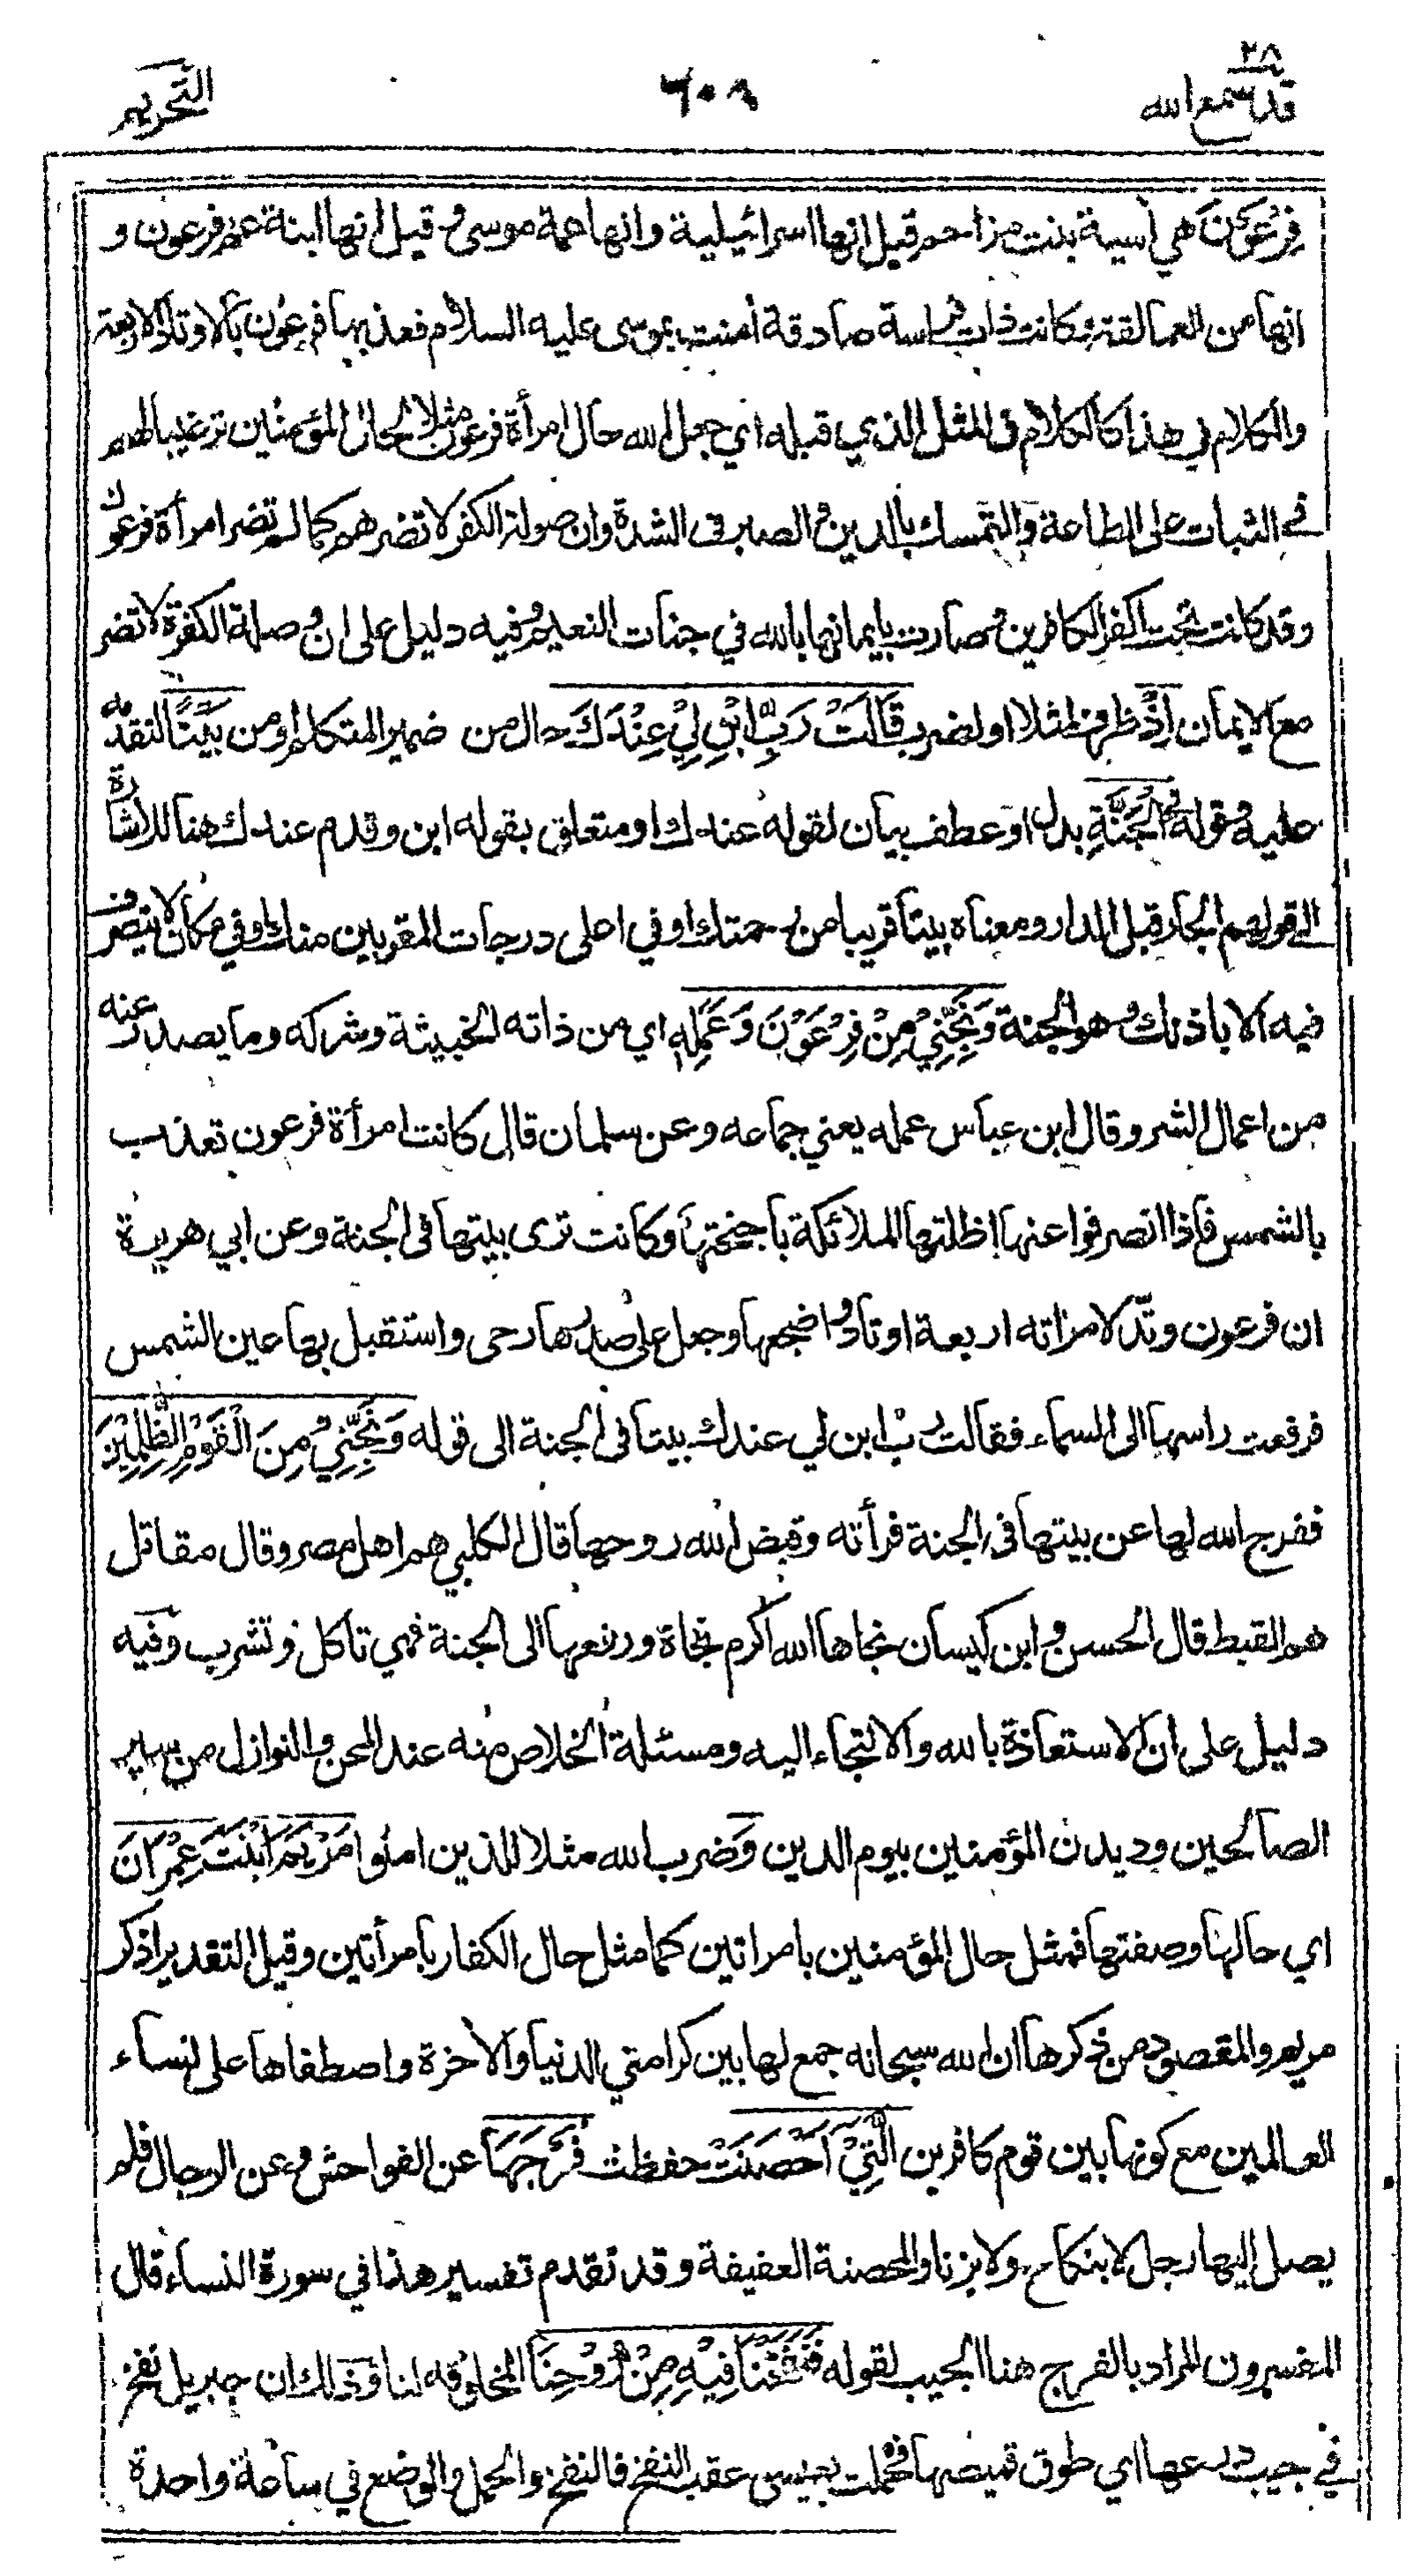 ٢٨
قد سمع الله
٦٠٨
التحريم
فِرْعَوْنَ هي اسية بنت مزاحم قيل انها اسرائيلية وانها عمة موسى وقيل انها ابنة عم فرعون و
انها من العمالقة وكانت ذات فراسة صادقة أمنت بموسى عليه السلام فعذبها فرعون بالاوتاد الاربعة
والكلام في هذا كالكلام في المثل الذي قبله اي جعل الله حال امرأة فرعون مثلا لحال المؤمنين ترغيبا لهم
في الثبات على الطاعة والتمسك بالدين والصبر في الشدة وان صولة الكفر لا تضرهم كما لم تضر امرأة فرعون
وقد كانت تحت اكفر الكافرين وصارت بايمانها بالله في جنات النعيم وفيه دليل على ان وصلة الكفرة لا تضر
مع الايمان اِذْ ظرف لمثلا او لضرب قَالَتْ رَبِّ ابْنِ لِيْ عِنْدَكَ حال من ضمير المتكلم او من بَيْتًا لتقدمه
عليه وقوله فِي الْجَنَّةِ بدل او عطف بيان لقوله عندك او متعلق بقوله ابن وقدم عندك هنا للاشارة
الى قولهم الجار قبل الدار ومعناه بيتا قريبا من رحمتك او في اعلى درجات المقربين منك او في مكان لا يتصرف
فيه الا باذنك وهو الجنة وَنَجِّنِيْ مِنْ فِرْعَوْنَ وَعَمَلِهِ اي من ذاته الخبيثة وشركه وما يصدر عنه
من اعمال الشر وقال ابن عباس عمله يعني جماعه وعن سلمان قال كانت امرأة فرعون تعذب
بالشمس فاذا انصرفوا عنها اظلتها الملائكة باجنحتها وكانت ترى بيتها في الجنة وعن ابي هريرة
ان فرعون وتّد لامراته اربعة اوتاد واضجعها وجعل على صدرها رحى واستقبل بها عين الشمس
فرفعت راسها الى السماء فقالت رب ابن لي عندك بيتا في الجنة الى قوله وَنَجِّنِيْ مِنَ الْقَوْمِ الظّٰلِمِيْنَ
ففرج الله لها عن بيتها في الجنة فرأته وقبض الله روحها قال الكلبي هم اهل مصر وقال مقاتل
هم القبط قال الحسن وابن كيسان نجاها الله اكرم نجاة ورفعها الى الجنة فهي تاكل وتشرب وفيه
دليل على ان الاستعاذة بالله والالتجاء اليه ومسئلة الخلاص منه عند المحن والنوازل من سير
الصالحين وديدن المؤمنين بيوم الدين وَضرب الله مثلا للذين امنوا مَرْيَمَ ابْنَتَ عِمْرَانَ
اي حالها وصفتها فمثل حال المؤمنين بامراتين كما مثل حال الكفار بامرأتين وقيل التقدير اذكر
مريم والمقصود من ذكرها ان الله سبحانه جمع لها بين كرامتي الدنيا والأخرة واصطفاها على نساء
العالمين مع كونها بين قوم كافرين الَّتِيْ اَحْصَنَتْ حفظت فَرْجَهَا عن الفواحش وعن الرجال فلم
يصل اليها رجل لا بنكاح ولا بزنا والمحصنة العفيفة وقد تقدم تفسير هذا في سورة النساء قال
المفسرون المراد بالفرج هنا الجيب لقوله فَنَفَخْنَا فِيْهِ مِنْ رُوْحِنَا المخلوقه لنا وذلك ان جبريل نفخ
في جيب درعها اي طوق قميصها فحملت بعيسى عقب النفخ فالنفخ والحمل والوضع في ساعة واحدة